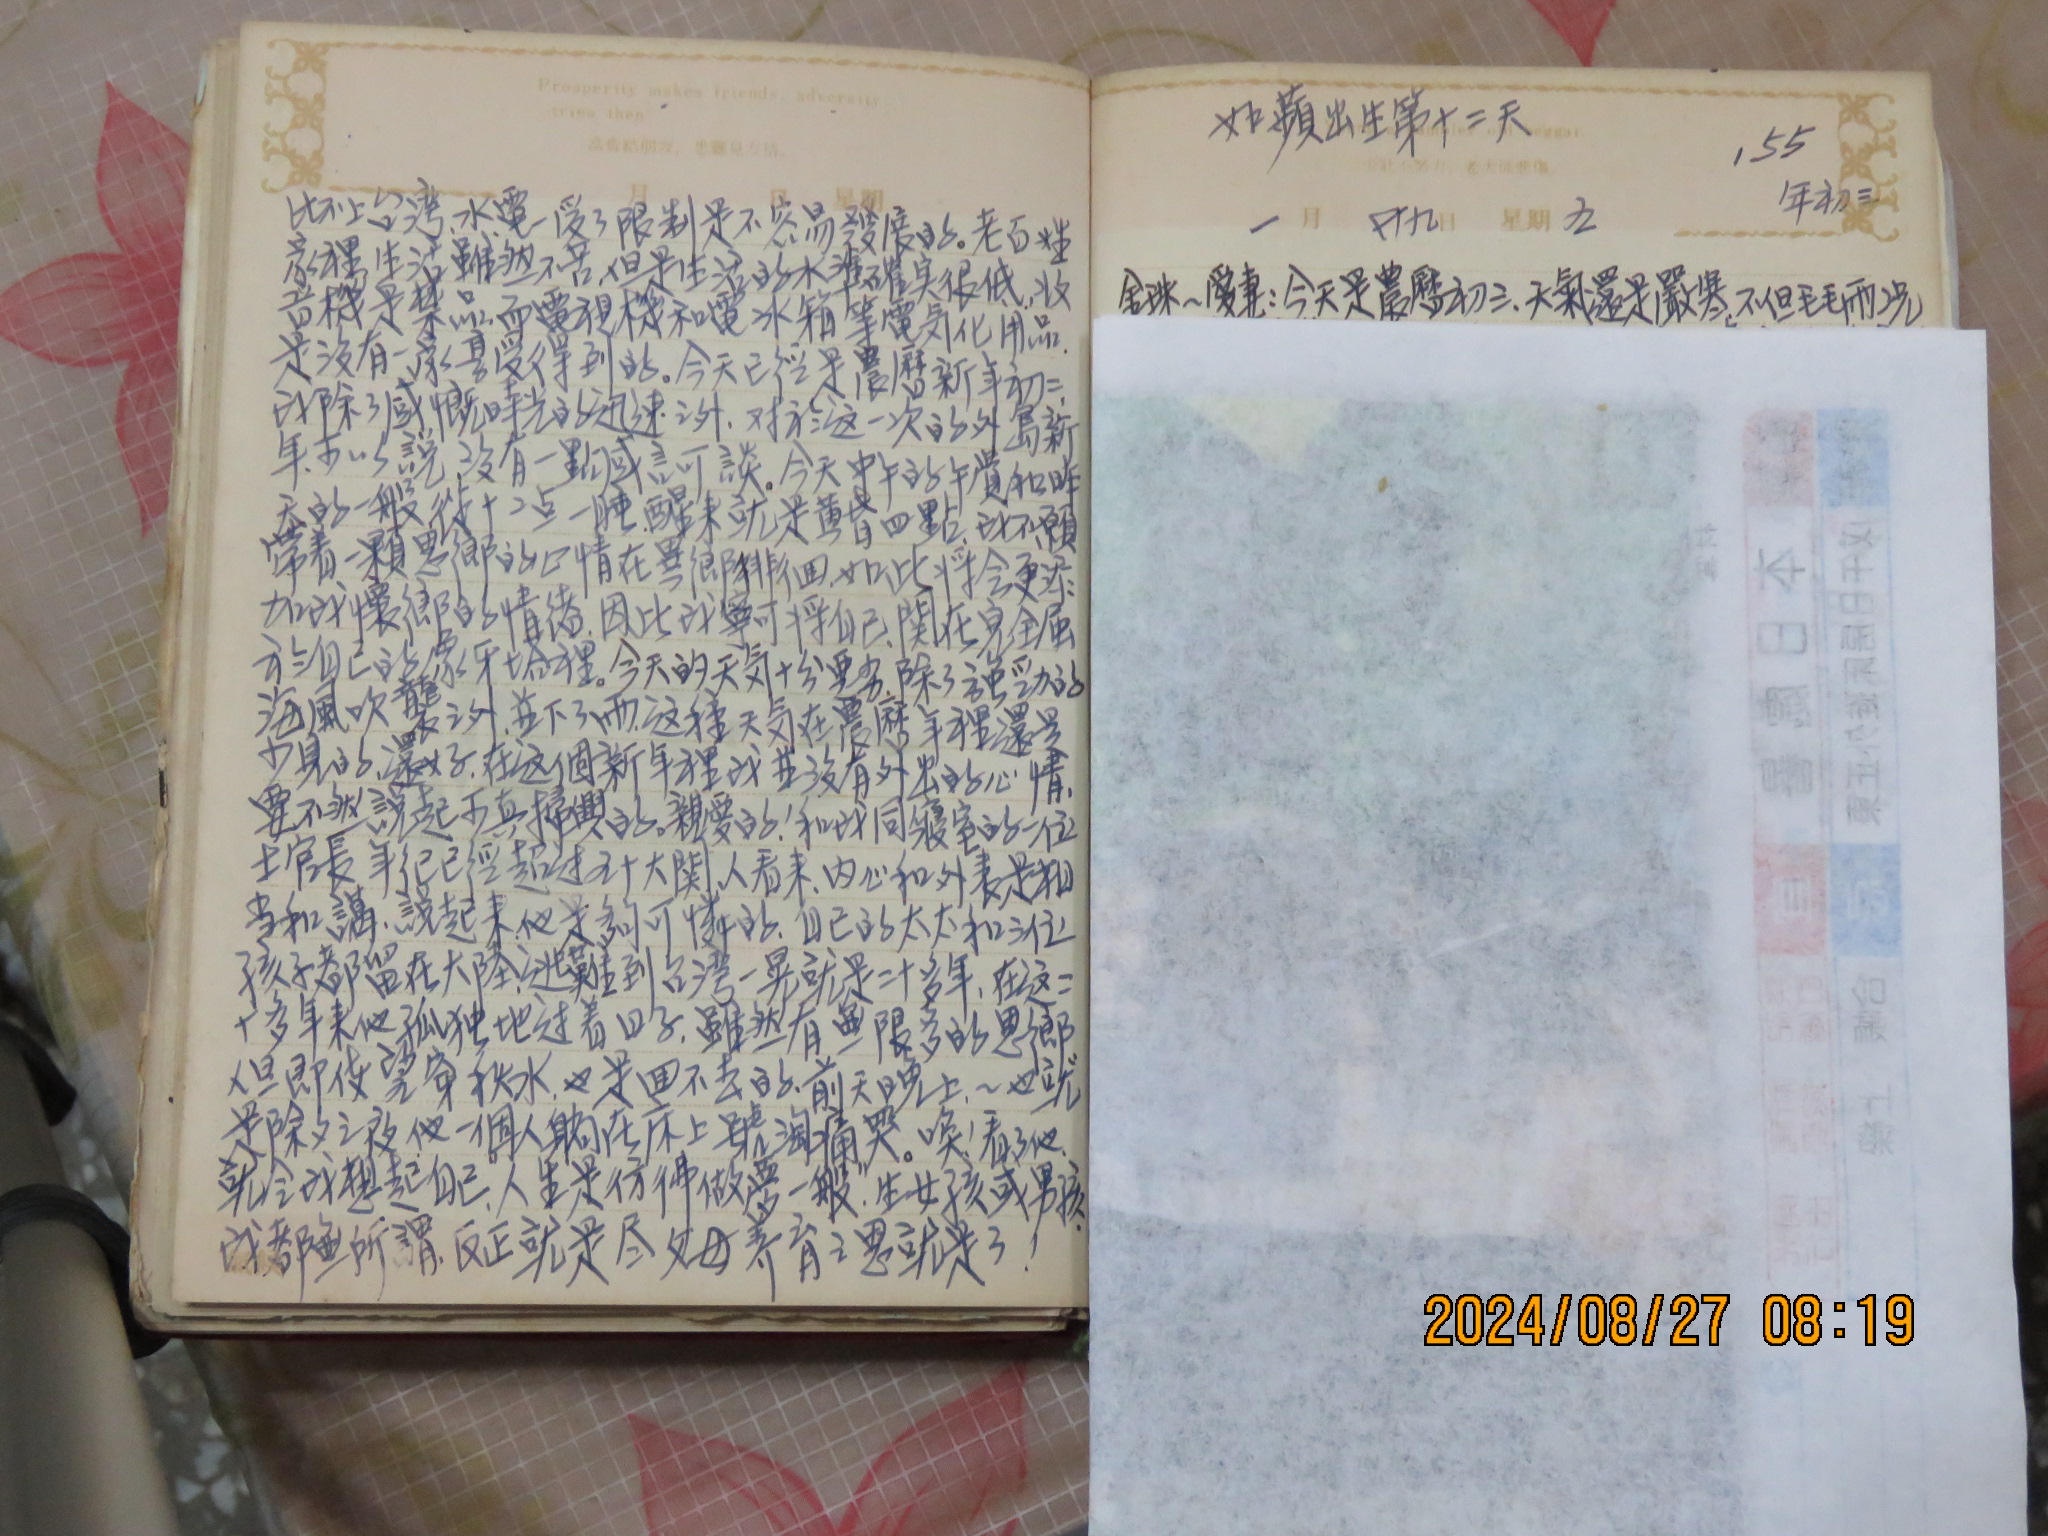 Prosperity makes friends, adversity
tries them
月 日 星期
比不上台湾,水電一受了限制是不容易發展的。老百姓
家裡生活雖然不苦,但是生活的水準確实很低,收
音機是禁品,而電視機和電冰箱等電気化用品,
是沒有一家享受得到的。今天已経是農曆新年初二,
我除了感慨時光的迅速之外,对於这一次的外島新
年,可以說沒有一點感言可談。今天中午的午賞和昨
天的一般從十二点一睡,醒来就是黄昏四點,我不願
帶着一顆思鄉的心情在異鄉徘徊,如此将会更添
加我懷鄉的情緒,因此我寧可将自己関在完全屬
於自己的象牙塔裡。今天的天気十分惡劣,除了強勁的
海風吹襲之外,並下了雨,这種天気在農曆年裡還是
少見的,還好,在这個新年裡我並沒有外出的心情,
要不然說起可真掃興的。親愛的!和我同寢室的一位
士官長年紀已経超过五十大関,人看来,内心和外表是相
当和謁,說起来,他是多的可憐的,自己的太太和三位
孩子都留在大陸,逃難到台湾一晃就是二十多年,在这二
十多年来他孤独地过着日子,雖然有無限多的思鄉
但即使望穿秋水,也是回不去的,前天晚上,~也就
是除夕之夜,他一個人躺在床上號淘痛哭。唉!看了他,
就令我想起自己,人生是仿佛做夢一般",生女孩或男孩,
我都無所謂,反正就是尽父母养育之恩就是了!
如蘋出生第十二天
155
年初三
一月 廿九日 星期五
金珠~愛妻:今天是農曆初三,天氣還是嚴寒,不但毛毛雨
2024/08/27 08:19